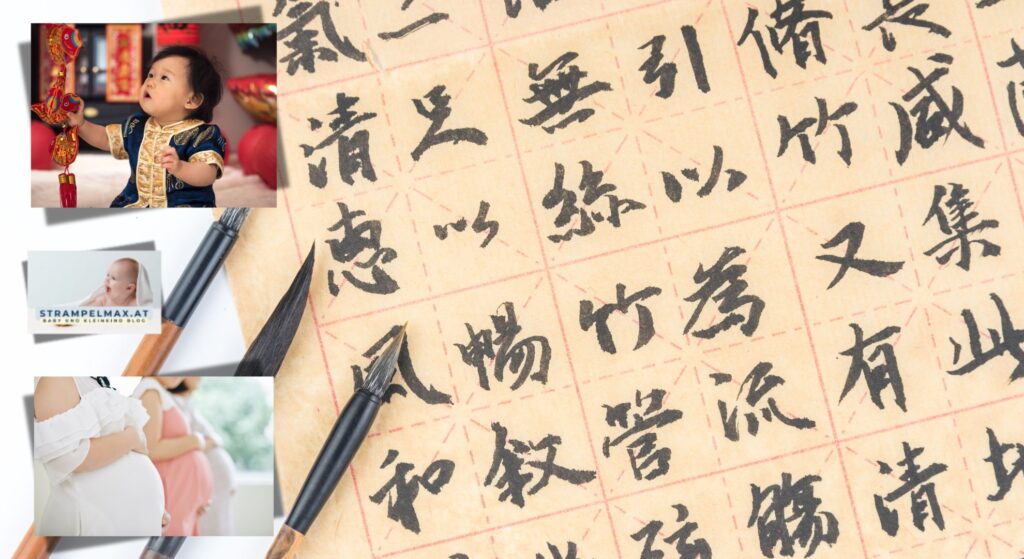 長咸集此地
脩竹又有清
引以為流觴
無絲竹管弦
足以暢叙
氣清惠風和
STRAMPELMAX.AT
BABY UND KLEINKIND BLOG